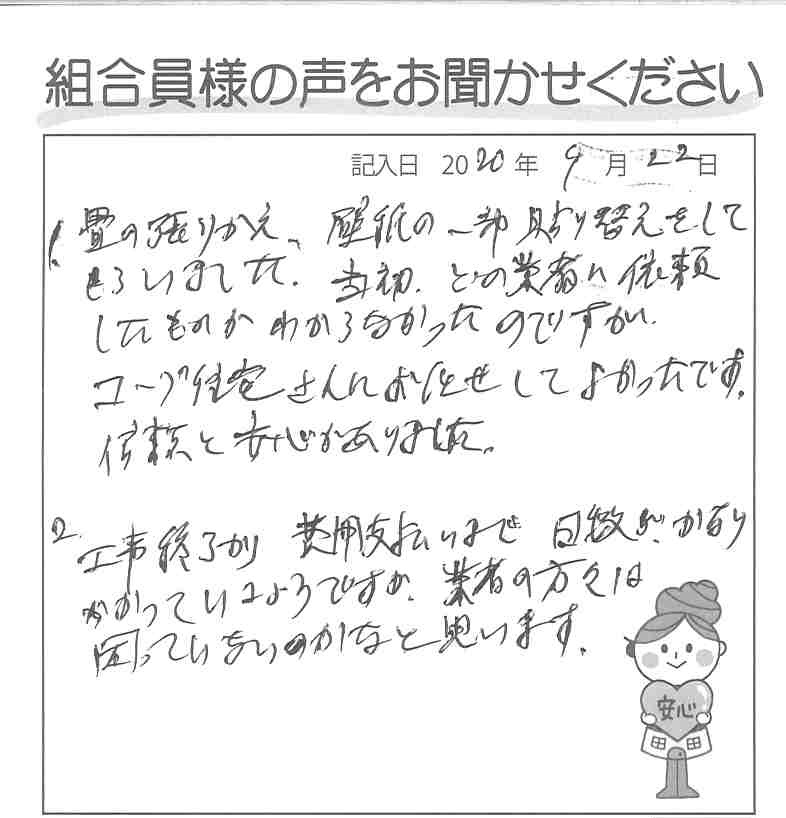 組合員様の声をお聞かせください
記入日 2020年 9月 22日
1. 畳の張りかえ、壁紙の一部貼り替えをして
もらいました。当初、どの業者に依頼
したものかわからなかったのですが、
コープ住宅さんにお任せしてよかったです。
信頼と安心がありました。
2. 工事終了から費用支払いまで日数がかなり
かかっているようですが、業者の方々は
困っていないのかなと思います。
安心